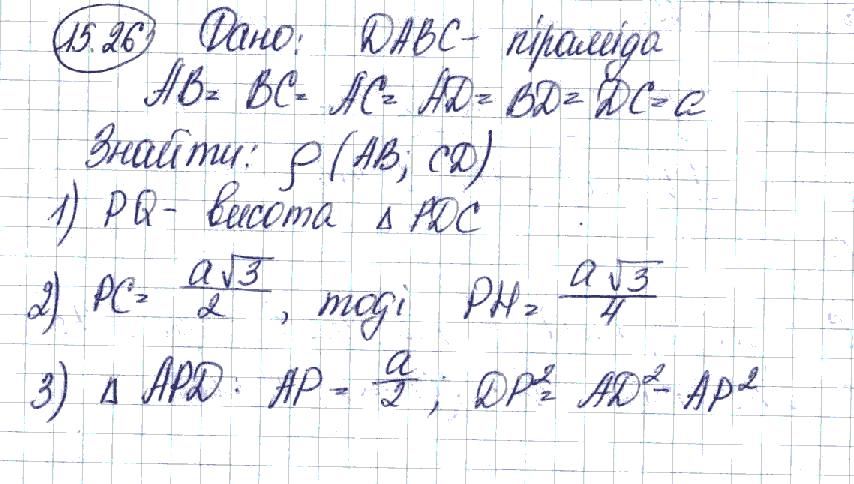 15.26 Дано: DABC - піраміда
AB = BC = AC = AD = BD = DC = a
Знайти: ρ (AB; CD)
1) PQ - висота Δ PDC
2) PC = a√3/2, тоді PH = a√3/4
3) Δ APD: AP = a/2; DP² = AD² - AP²